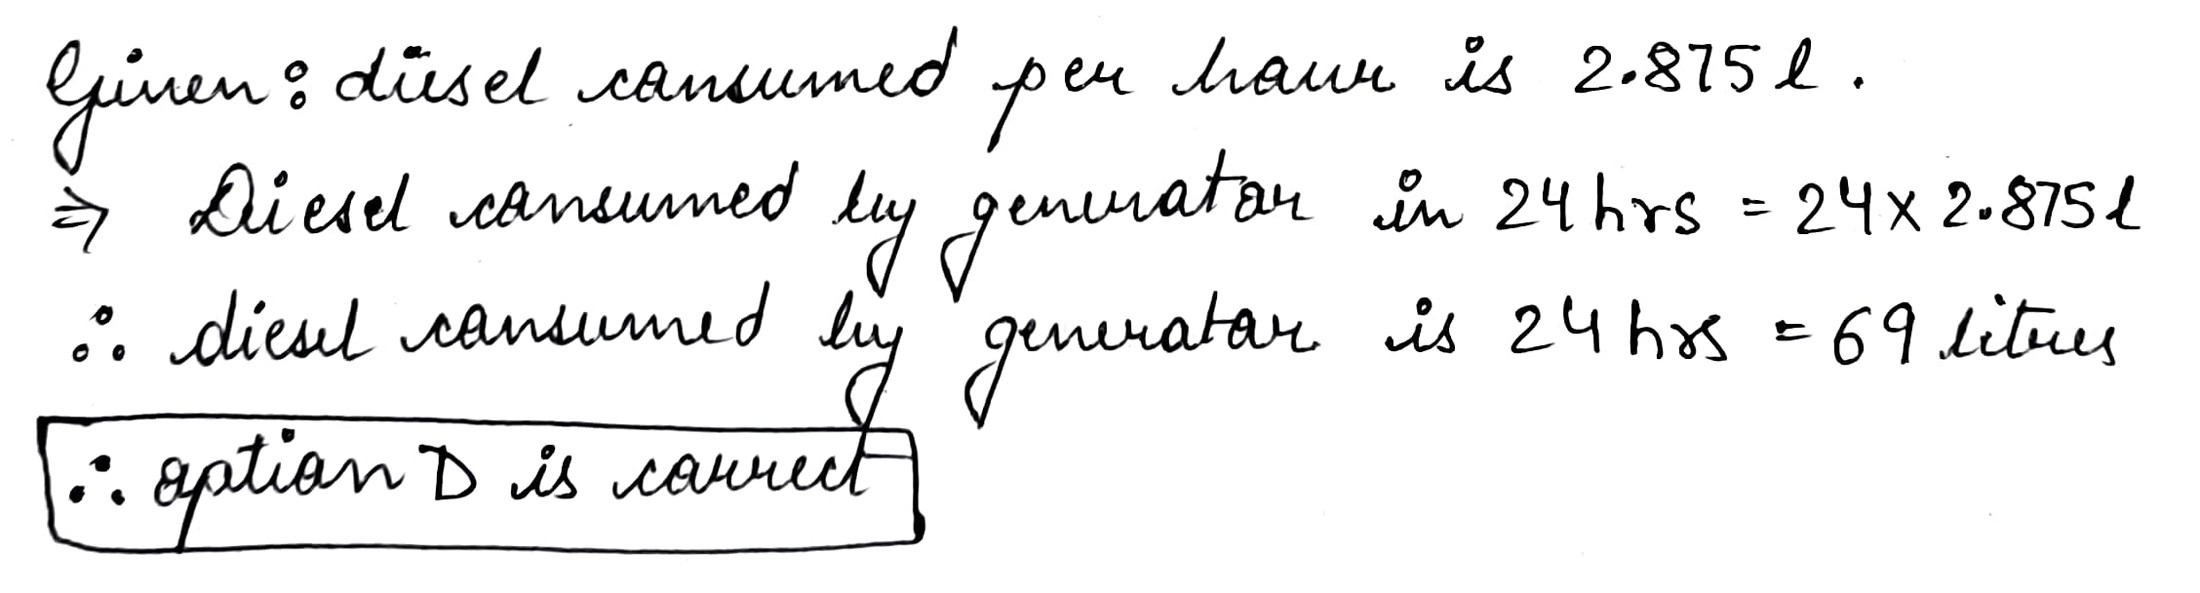 Given: diesel consumed per hour is 2.875 l.
⇒ Diesel consumed by generator in 24 hrs = 24 × 2.875 l
∴ diesel consumed by generator is 24 hrs = 69 litres
∴ option D is correct